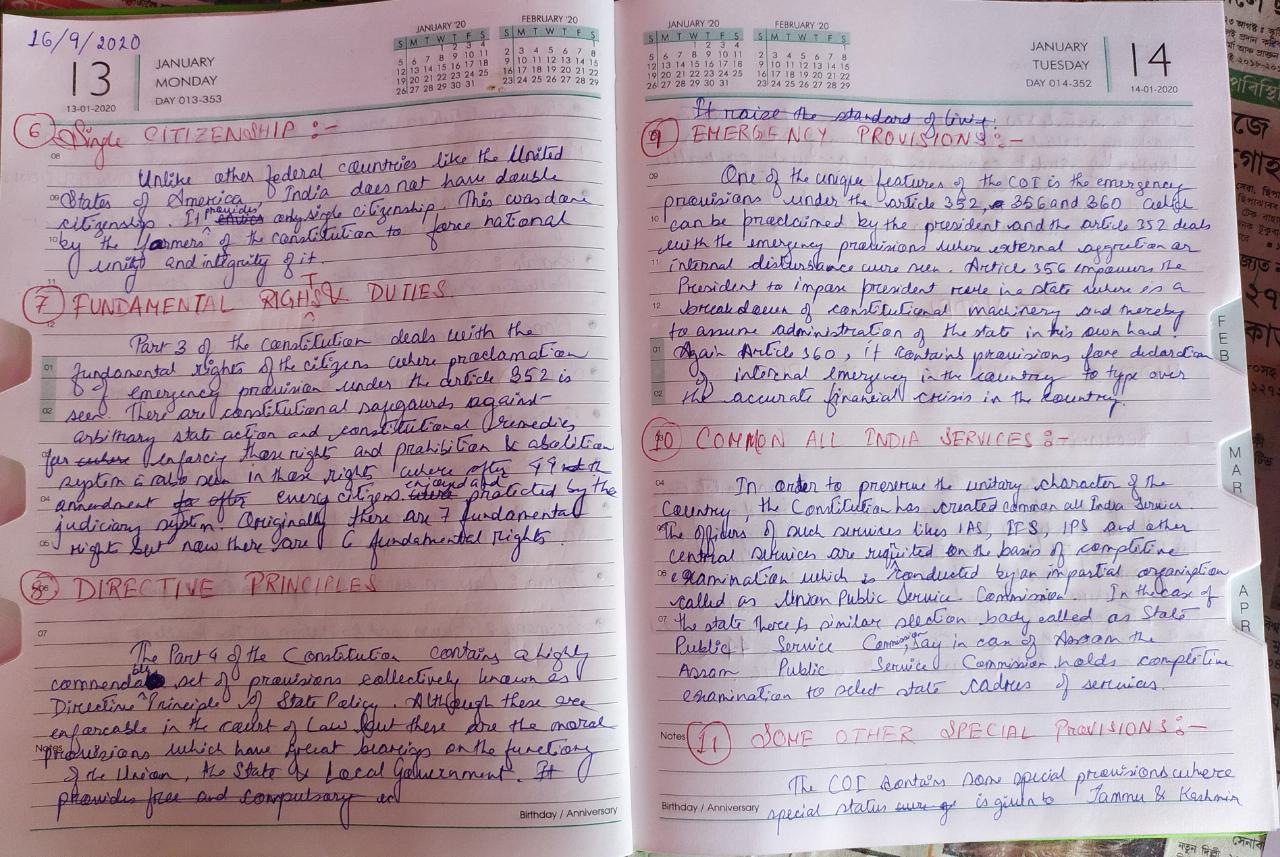 16/9/2020
13
13-01-2020
JANUARY
MONDAY
DAY 013-353
JANUARY '20
S M T W T F S
1 2 3 4
5 6 7 8 9 10 11
12 13 14 15 16 17 18
19 20 21 22 23 24 25
26 27 28 29 30 31
FEBRUARY '20
S M T W T F S
1
2 3 4 5 6 7 8
9 10 11 12 13 14 15
16 17 18 19 20 21 22
23 24 25 26 27 28 29
6 Single CITIZENSHIP :-
Unlike other federal countries like the United
States of America India does not have double
citizenship. It provides only single citizenship. This was done
by the farmers of the constitution to force national
unity and integrity of it.
7 FUNDAMENTAL RIGHTS & DUTIES
Part 3 of the constitution deals with the
fundamental rights of the citizens where proclamation
of emergency provision under the article 352 is
seen. There are constitutional safegaurds against
arbitrary state action and constitutional remedies
for where enforcing those right and prohibition & abolition
system is also seen in those right where after 44th
amendment to after every citizens enjoyed and protected by the
judiciary system. Originally there are 7 fundamental
right but now there are 6 fundamental rights.
8 DIRECTIVE PRINCIPLES
The Part 4 of the Constitution contains a highly
commendable set of provisions collectively known as
Directive Principle of State Policy. Although these are
enforcable in the court of Law but there are the moral
provisions which have great bearings on the functiong
of the Union, the State & Local Government. It
provides free and compulsory ed
Notes
Birthday / Anniversary
JANUARY '20
S M T W T F S
1 2 3 4
5 6 7 8 9 10 11
12 13 14 15 16 17 18
19 20 21 22 23 24 25
26 27 28 29 30 31
FEBRUARY '20
S M T W T F S
1
2 3 4 5 6 7 8
9 10 11 12 13 14 15
16 17 18 19 20 21 22
23 24 25 26 27 28 29
JANUARY
TUESDAY
DAY 014-352
14
14-01-2020
It raise the standard of living.
9 EMERGENCY PROVISIONS :-
One of the unique features of the COI is the emergency
provisions under the article 352, 356 and 360 which
can be proclaimed by the president and the article 352 deals
with the emergency provisions where external aggretion or
internal disturbance were seen. Article 356 empowers the
President to impose president rule in a state where is a
breakdown of constitutional machinery and thereby
to assume administration of the state in his own hand.
Again Article 360, it contains provisions fore declaration
of internal emergency in the country to type over
the accurate financial crisis in the country.
10 COMMON ALL INDIA SERVICES :-
In order to preserve the unitary character of the
Country, the Constitution has created common all India Service.
The officers of such services likes IAS, IFS, IPS and other
central services are requited on the basis of completive
examination which is conducted by an impartial organisation
called as Union Public Service Commission. In the case of
the state there is similar slection body called as State
Public Service Commission, say in case of Assam the
Assam Public Service Commission holds completive
examination to select state cadres of services.
Notes
11 SOME OTHER SPECIAL PROVISIONS :-
The COI contains some special provisions where
special status is given to Jammu & Kashmir
Birthday / Anniversary
FEB
MAR
APR